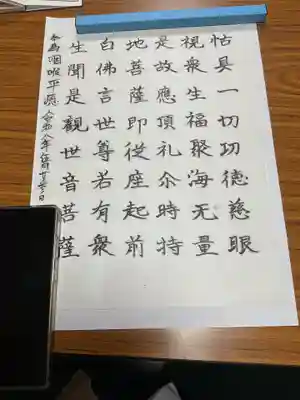 怙具一切功徳慈眼
視衆生福聚海无量
是故應頂礼尒時持
地菩薩即従座起前
白佛言世尊若有衆
生聞是觀世音菩薩
奉為咽喉平癒